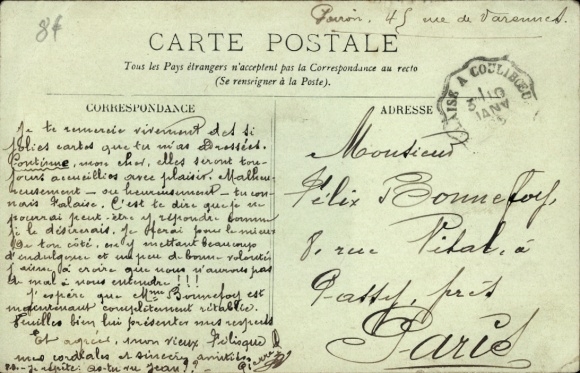 Poiron, 45 rue de Varennes.
CARTE POSTALE
Tous les Pays étrangers n'acceptent pas la Correspondance au recto
(Se renseigner à la Poste).
CORRESPONDANCE
Je te remercie vivement des si
jolies cartes que tu m'as adressées.
Continue, mon cher, elles seront tou-
jours accueillies avec plaisir. Malheu-
reusement — ou heureusement — tu con-
nais Falaise. C'est te dire que je ne
pourrai peut-être y répondre comme
je le désirerais. Je ferai pour le mieux
De ton côté, en y mettant beaucoup
d'indulgence et un peu de bonne volonté
j'aime à croire que nous n'aurons pas
de mal à nous entendre !!!
J'espère que Mme Bonnefoy est
maintenant complètement rétablie.
Veuillez bien lui présenter mes respects
Et agrée, mon vieux Félisque
mes cordiales et sincères amitiés
P.S. - Je répète: as-tu vu Jean ??
ADRESSE
AISE A COULIBŒU
JANV
Monsieur
Félix Bonnefoy,
8, rue Vital, à
Passy, près
Paris